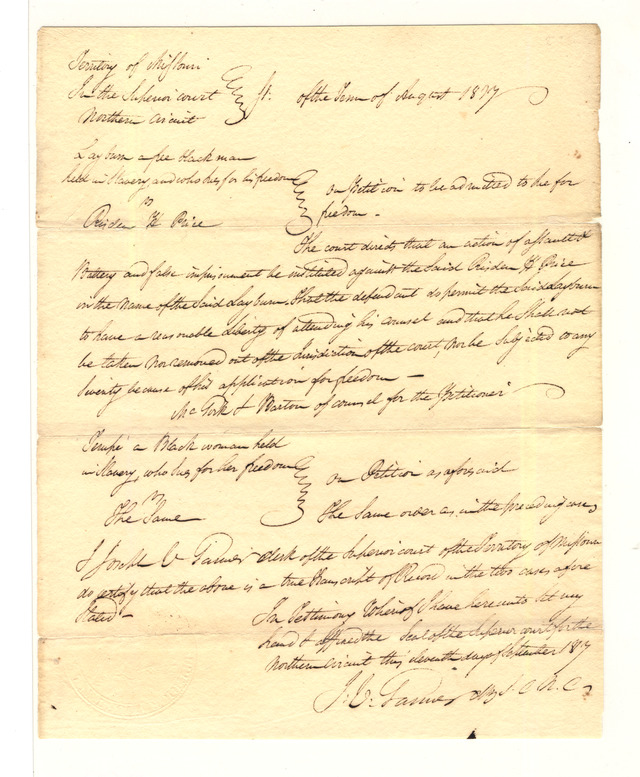 Territory of Missouri
In the Superior court
Northern Circuit
of the Term of August 1817
Layburn a free black man
held in Slavery and who sues for his freedom
vs
Risden H Price
on Petition to be admitted to sue for
freedom -
The court directs that an action of assault &
Battery and false imprisonment be instituted against the Said Risdon H Price
in the Name of the Said Layburn. That the defendant do permit the Said Layburn
to have a reasonable liberty of attending his counsel and that he Shall not
be taken nor removed out of the Jurisdiction of the court, nor be Subjected to any
Severity because of his application for freedom -
& Barton of counsel for the Petitioner
Tempe a Black woman held
in Slavery, who sues for her freedom
vs
The Same
on Petition as aforesaid
The Same order as in the preceding case
I Joseph V Garnier clerk of the Superior court of the Territory of Missouri
do certify that the above is a true Transcript of Record in the two cases afore
Stated -
In Testimony Whereof I have hereunto Set my
hand & affixed the Seal of the Superior court for the
Northern Circuit this eleventh day of September 1817
J. V. Garnier